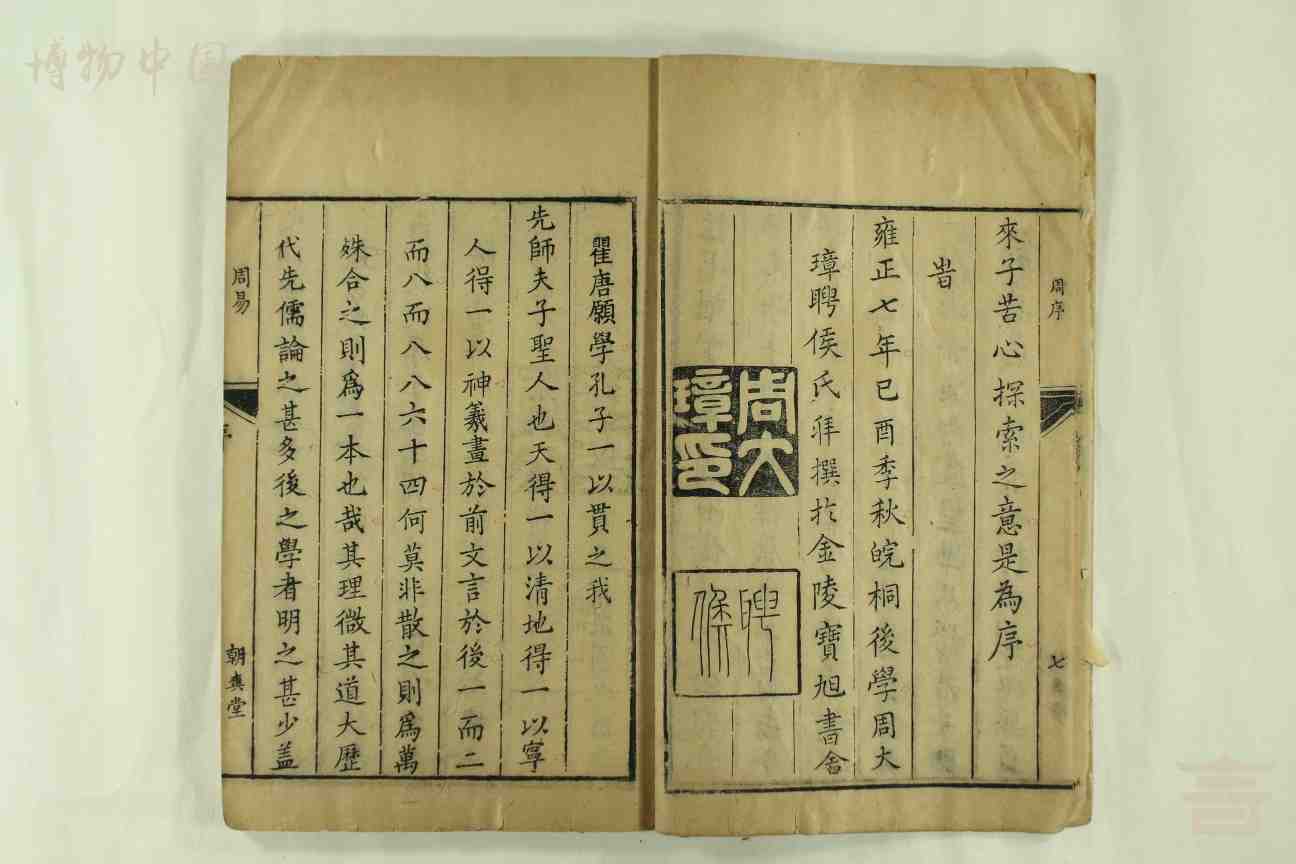 博物中国
周序
來子苦心探索之意是為序
旹
雍正七年巳酉季秋皖桐後學周大
璋聘侯氏拜撰於金陵寶旭書舍
周大
璋印
聘
侯
七
瞿唐願學孔子一以貫之我
先師夫子聖人也天得一以清地得一以寧
人得一以神羲畫於前文言於後一而二
而八而八八六十四何莫非散之則爲萬
殊合之則爲一本也哉其理微其道大歷
代先儒論之甚多後之學者明之甚少盖
周易
序
朝爽堂